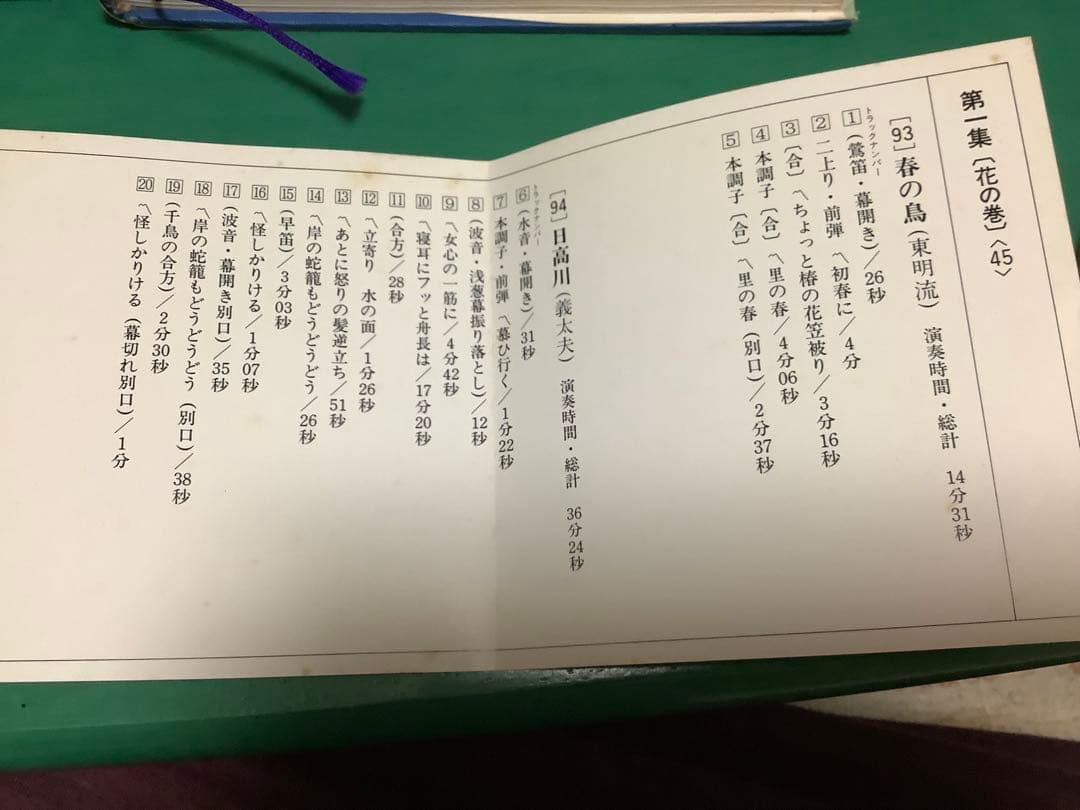 第一集〔花の巻〕〈45〉
［93］春の鳥（東明流） 演奏時間・総計 14分31秒
トラックナンバー
1（鶯笛・幕開き）／26秒
2 二上り・前弾 〽初春に／4分
3〔合〕〽ちょっと椿の花笠被り／3分16秒
4 本調子〔合〕〽里の春／4分06秒
5 本調子〔合〕〽里の春（別口）／2分37秒
［94］日高川（義太夫） 演奏時間・総計 36分24秒
トラックナンバー
6（水音・幕開き）／31秒
7 本調子・前弾 〽慕ひ行く／1分22秒
8（波音・浅葱幕振り落とし）／12秒
9 〽女心の一筋に／4分42秒
10 〽寝耳にフッと舟長は／17分20秒
11（合方）／28秒
12 〽立寄り 水の面／1分26秒
13 〽あとに怒りの髪逆立ち／51秒
14 〽岸の蛇籠もどうどうどう／26秒
15（早笛）／3分03秒
16 〽怪しかりける／1分07秒
17（波音・幕開き別口）／35秒
18 〽岸の蛇籠もどうどうどう（別口）／38秒
19（千鳥の合方）／2分30秒
20 〽怪しかりける（幕切れ別口）／1分